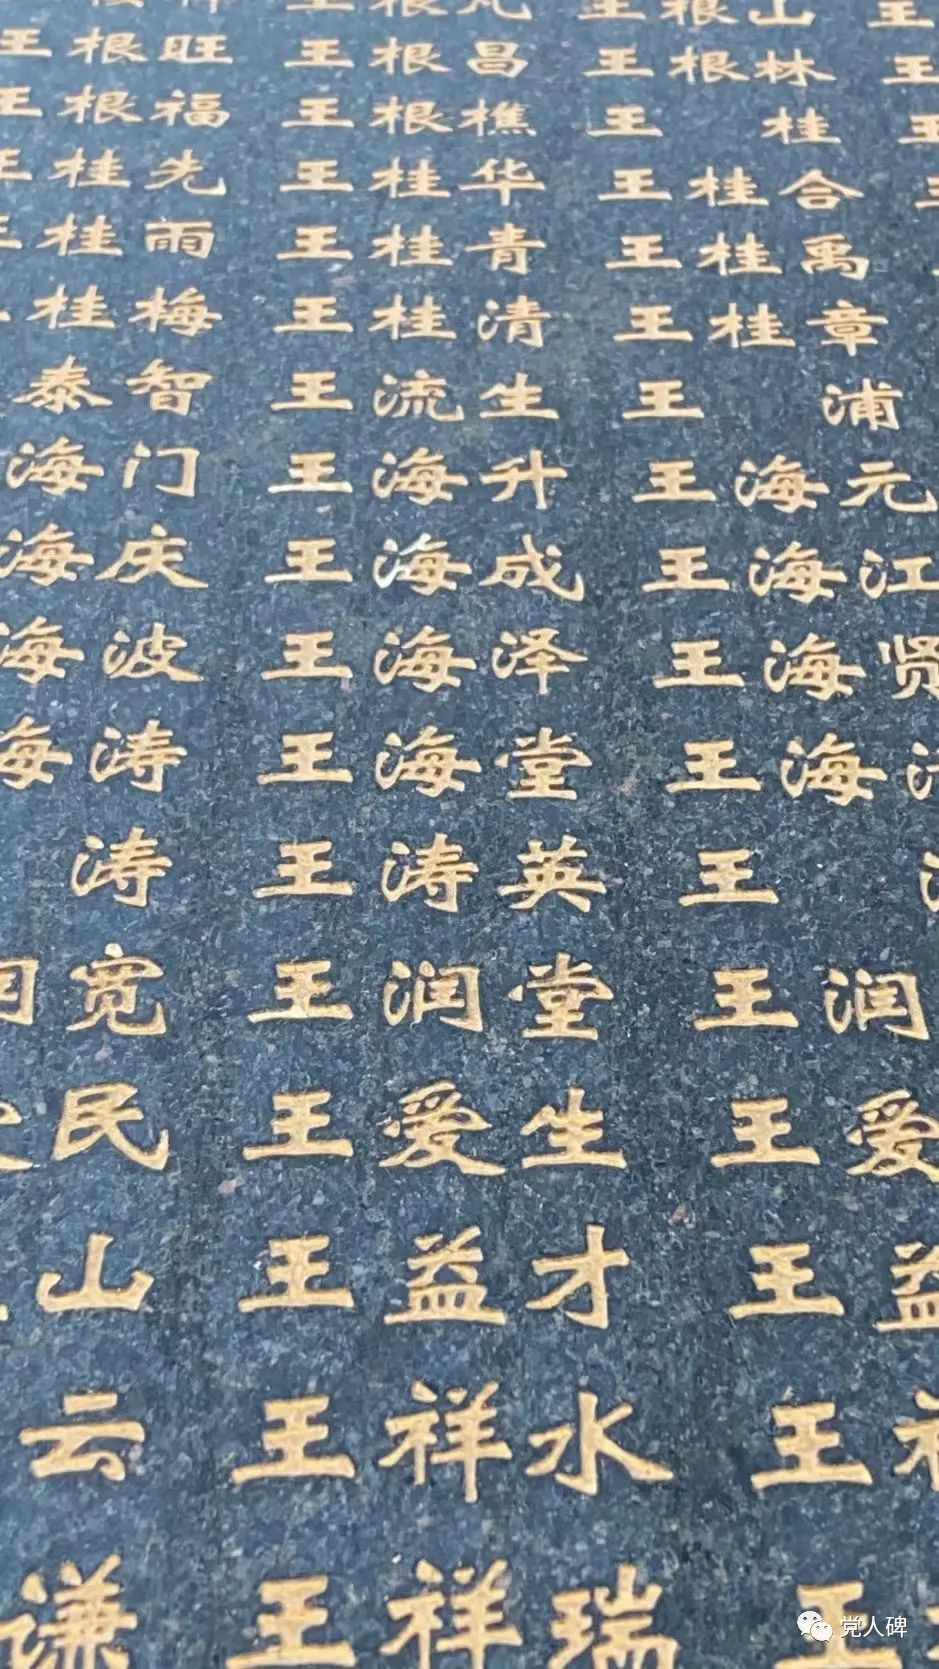 王根山 王
王根旺 王根昌 王根林 王
王根福 王根樵 王桂 王
王桂先 王桂华 王桂合 王
王桂雨 王桂青 王桂禹
王桂梅 王桂清 王桂章
泰智 王流生 王浦
海门 王海升 王海元
海庆 王海成 王海江
海波 王海泽 王海贤
海涛 王海堂 王海
涛 王涛英 王
润宽 王润堂 王润
民 王爱生 王爱
山 王益才 王益
云 王祥水 王祥
谦 王祥瑞 王
党人碑